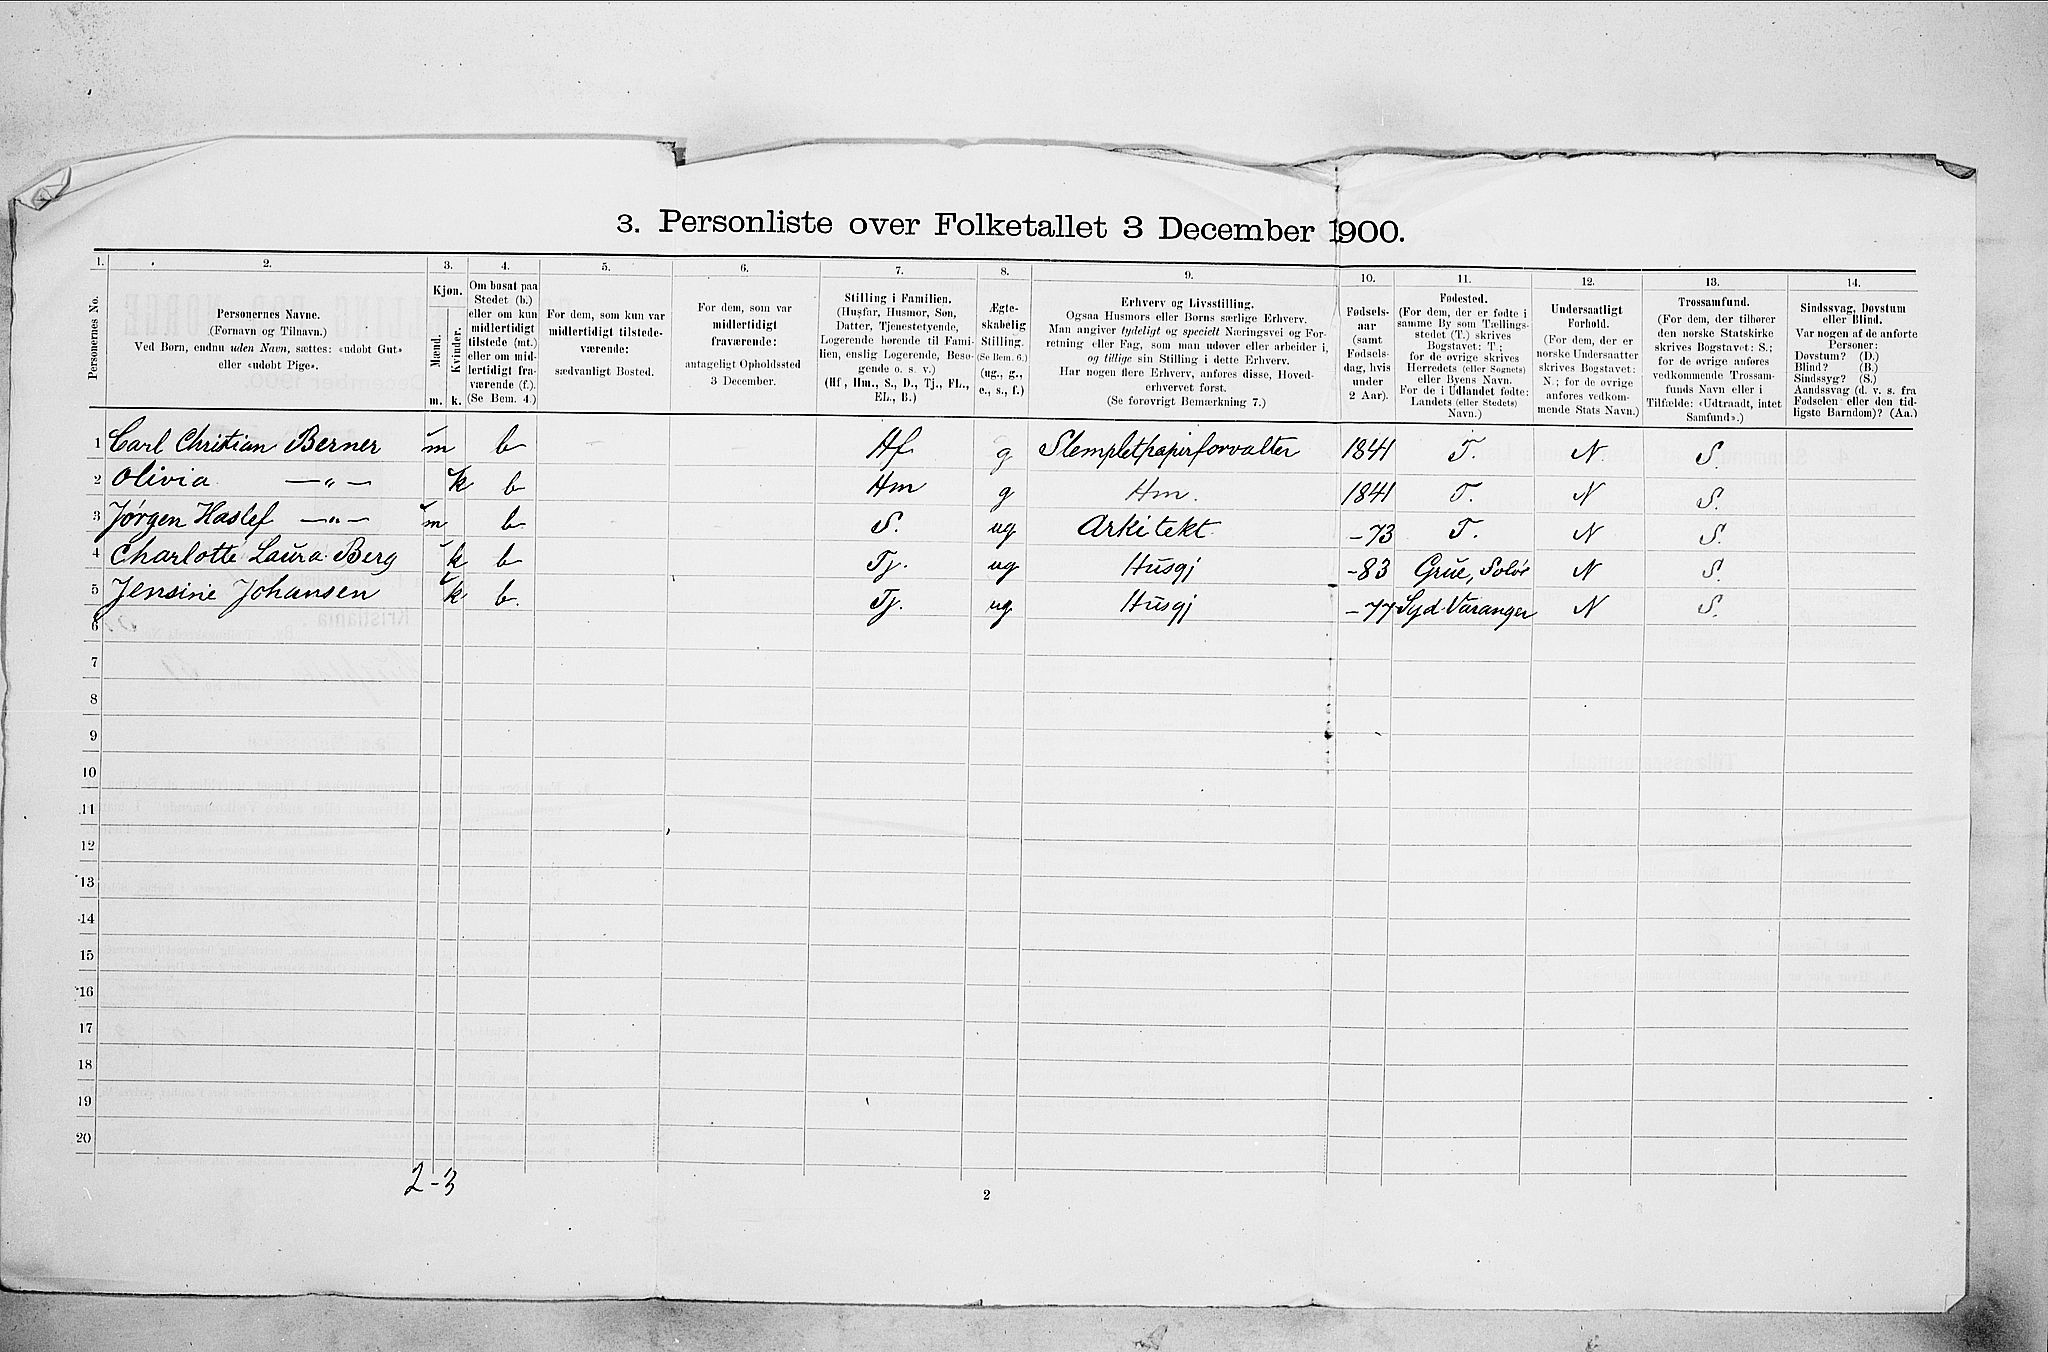 3. Personliste over Folketallet 3 December 1900.
1. 2. 3. 4. 5. 6. 7. 8. 9. 10. 11. 12. 13. 14.
Personernes No.
Personernes Navne.
(Fornavn og Tilnavn.)
Ved Børn, endnu uden Navn, sættes: «udøbt Gut»
eller «udøbt Pige».
Kjøn.
Mænd.
Kvinder.
m. k.
Om bosat paa
Stedet (b.)
eller om kun
midlertidigt
tilstede (mt.)
eller om mid-
lertidigt fra-
værende (f.).
(Se Bem. 4.)
For dem, som kun var
midlertidigt tilstede-
værende:
sædvanligt Bosted.
For dem, som var
midlertidigt
fraværende:
antageligt Opholdssted
3 December.
Stilling i Familien.
(Husfar, Husmor, Søn,
Datter, Tjenestetyende,
Logerende hørende til Fami-
lien, enslig Logerende, Besø-
gende o. s. v.)
(Hf., Hm., S., D., Tj., FL.,
EL., B.)
Ægte-
skabelig
Stilling.
(Se Bem. 6.)
(ug., g.,
e., s., f.)
Erhverv og Livsstilling.
Ogsaa Husmors eller Børns særlige Erhverv.
Man angiver tydeligt og specielt Næringsvei og For-
retning eller Fag, som man udøver eller arbeider i,
og tillige sin Stilling i dette Erhverv.
Har nogen flere Erhverv, anføres disse, Hoved-
erhvervet først.
(Se forøvrigt Bemærkning 7.)
Fødsels-
aar
(samt
Fødsels-
dag, hvis
under
2 Aar).
Fødested.
(For dem, der er fødte i
samme By som Tællings-
stedet (T.) skrives
Bogstavet: T.;
for de øvrige skrives
Herredets (eller Sognets)
eller Byens Navn.
For de i Udlandet fødte:
Landets (eller Stedets)
Navn.)
Undersaatligt
Forhold.
(For dem, der er
norske Undersaatter
skrives Bogstavet:
N.; for de øvrige
anføres vedkom-
mende Stats Navn.)
Trossamfund.
(For dem, der tilhører
den norske Statskirke
skrives Bogstavet: S.;
for de øvrige anføres
vedkommende Trossam-
funds Navn eller i
Tilfælde: «Udtraadt, intet
Samfund».)
Sindssvag, Døvstum
eller Blind.
Var nogen af de anførte
Personer:
Døvstum? (D.)
Blind? (B.)
Sindssyg? (S.)
Aandssvag (d. v. s. fra
Fødselen eller den tid-
ligste Barndom)? (Aa.)
1 Carl Christian Berner m b Hf g Stempletpapirforvalter 1841 T. N. S.
2 Olivia —„— k b Hm g Hm. 1841 T. N S.
3 Jørgen Haslef —„— m b S. ug Arkitekt. -73 T. N S.
4 Charlotte Laura Berg k b Tj. ug Husgj -83 Grue, Solør N S.
5 Jensine Johansen k b. Tj. ug Husgj -77 Syd Varanger N S.
6
7
8
9
10
11
12
13
14
15
16
17
18
19
20
2-3
2